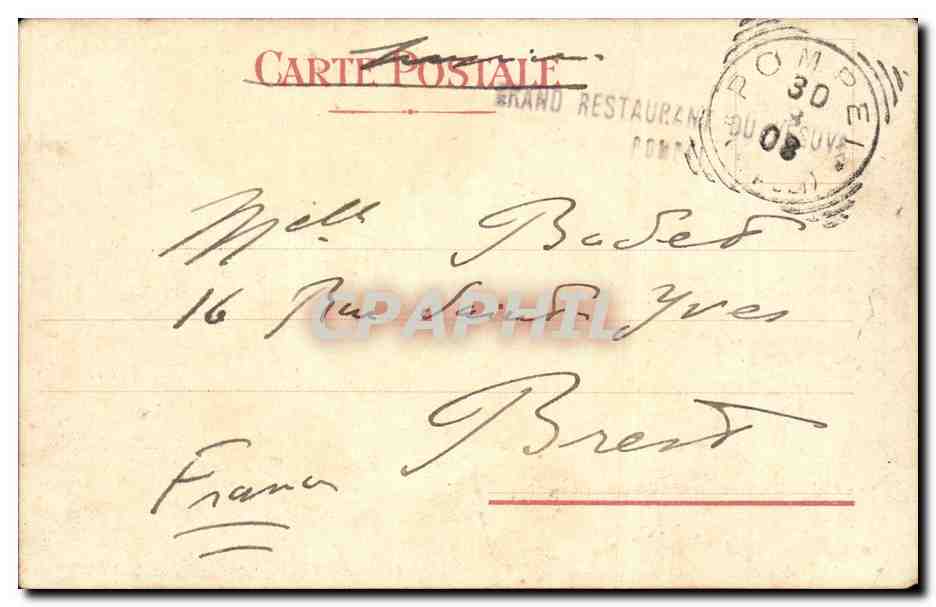 CARTE POSTALE
GRAND RESTAURANT DU VESUVE
POMPEI
POMPEI
30
08
Melle Badet
16 Rue Saint Yves
CPAPHIL
Brest
France